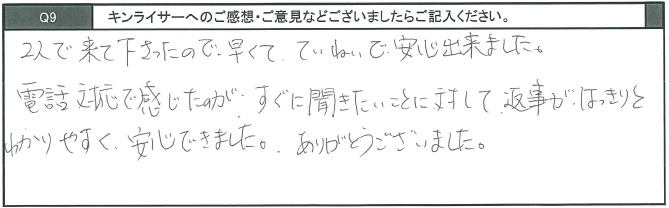 Q9 キンライサーへのご感想・ご意見などございましたらご記入ください。
2人で来て下さったので早くて、ていねいで安心出来ました。
電話対応で感じたのが、すぐに聞きたいことに対して、返事がはっきりと
わかりやすく、安心できました。ありがとうございました。